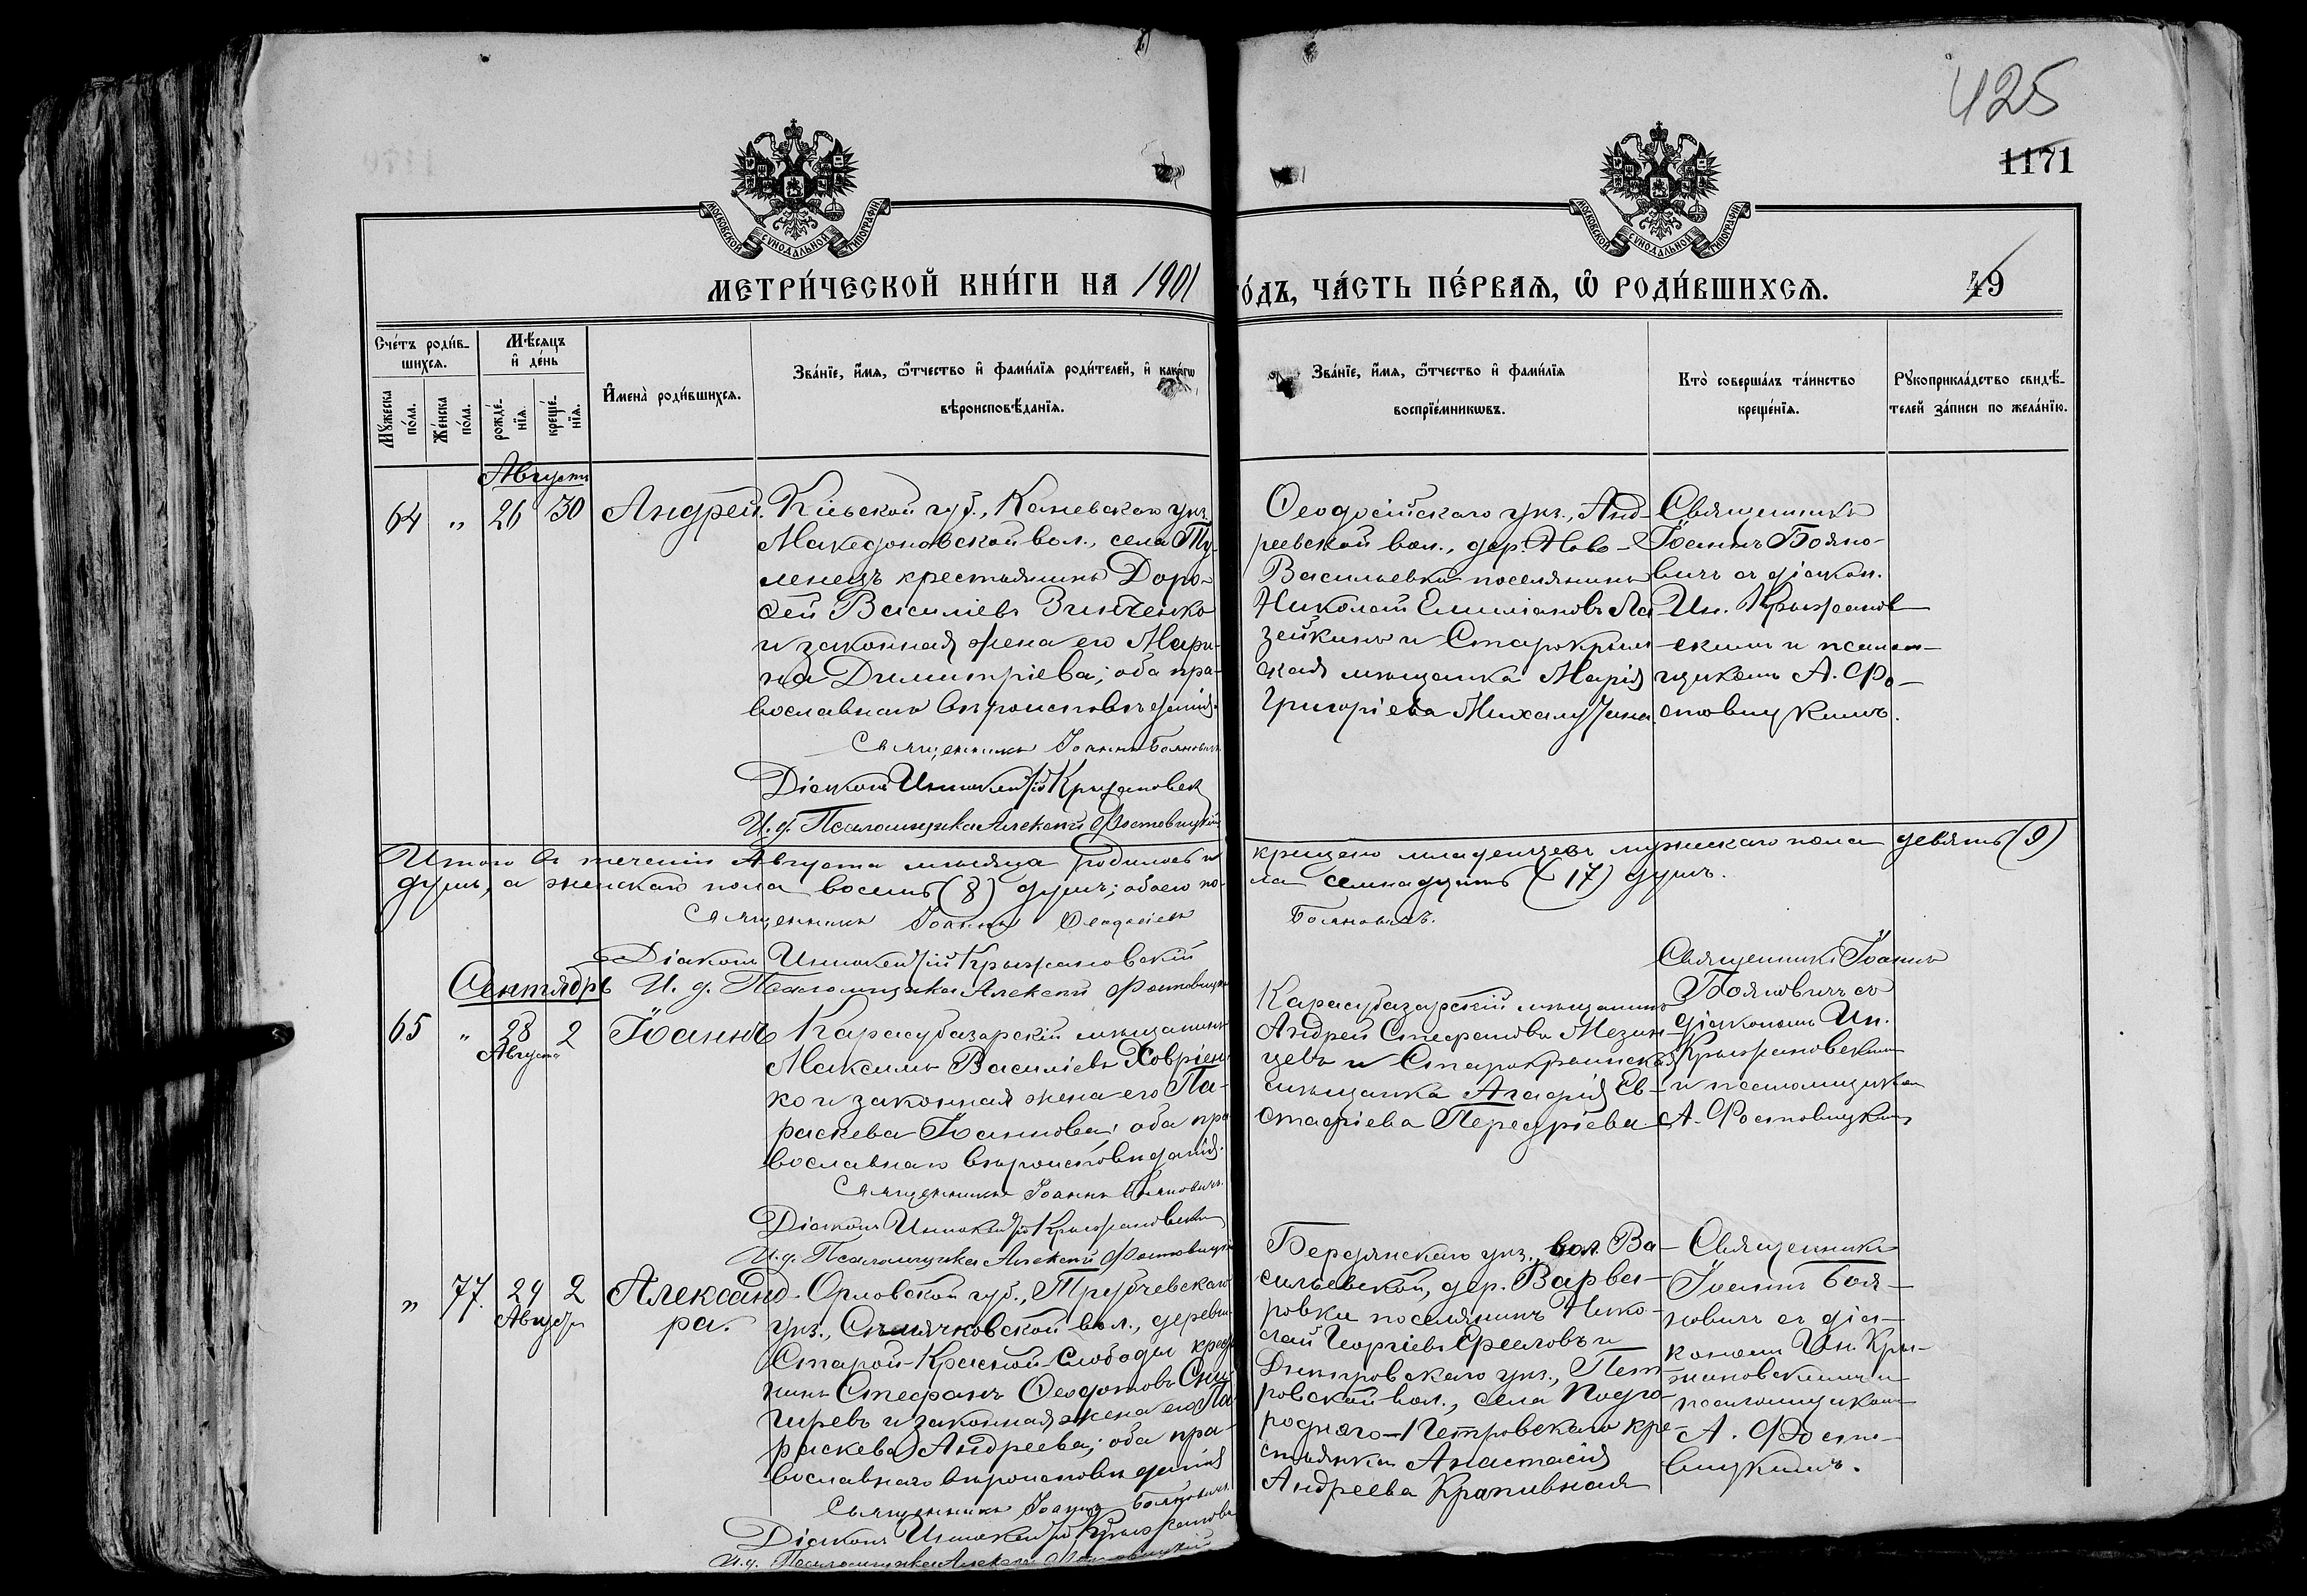 425
1171
МОСКОВСКОЙ СѴНОДАЛЬНОЙ ТИПОГРАФІИ
МОСКОВСКОЙ СѴНОДАЛЬНОЙ ТИПОГРАФІИ
МЕТРИ́ЧЕСКОЙ КНИ́ГИ НА 1901
ГО́ДЪ, ЧА́СТЬ ПЕ́РВАѦ, Ѡ҆ РОДИ́ВШИХСѦ.
49
Сче́тъ роди́в-
шихсѧ.
Мѣ́сѧцъ
и҆ де́нь
Мꙋ́жеска
по́ла.
Же́нска
по́ла.
рожде́-
нїѧ.
креще́-
нїѧ.
И҆мена̀ роди́вшихсѧ.
Зва́нїе, и҆́мѧ, ѻ҆́тчество и҆ фами́лїѧ роди́телей, и҆ како́гѡ
вѣроисповѣ́данїѧ.
Зва́нїе, и҆́мѧ, ѻ҆́тчество и҆ фами́лїѧ
воспрїе́мникѡвъ.
Кто̀ соверша́лъ та́инство
креще́нїѧ.
Рꙋкоприкла́дство свидѣ́-
телей за́писи по жела́нїю.
Августъ
64 „ 26 30 Андрей.
Кіевской губ., Каневскаго уѣз.
Македоновской вол., села Ту-
ленецъ крестьянинъ Доро-
ѳей Василіевъ Зинченко
и законная жена его Мари-
на Димитріева; оба пра-
вославнаго вѣроисповѣданія.
Священникъ Іоаннъ Бояновичъ
Діаконъ Иннокентій Крыжановскій
И. д. Псаломщика Алексѣй Фостовицкій
Ѳеодосійскаго уѣз., Анд-
реевской вол., дер. Ново-
Васильевки поселянинъ
Николай Емиліановъ Ла-
зейкинъ и Старокрым-
ская мѣщанка Марія
Григоріева
Священникъ
Іоаннъ Бояно-
вичъ съ діакон.
Ин. Крыжанов-
скимъ и псалом-
щикомъ А. Фо-
стовицкимъ.
Итого въ теченіи Августа мѣсяца родилось и
крещено младенцевъ мужескаго пола девять (9)
душъ, а женскаго пола восемь (8) душъ; обоего по-
ла семнадцать (17) душъ.
Священникъ Іоаннъ Ѳеодосіевъ
Бояновичъ.
Діаконъ Иннокентій Крыжановскій
И. д. Псаломщика Алексѣй Фостовицкій
Сентябрь
65 „ 28 2 Іоаннъ
Августа
Карасубазарскій мѣщанинъ
Максимъ Василіевъ Ховріен-
ко и законная жена его Па-
раскева Іоаннова; оба пра-
вославнаго вѣроисповѣданія.
Священникъ Іоаннъ Бояновичъ
Діаконъ Иннокентій Крыжановскій
И. д. Псаломщика Алексѣй Фостовицкій
Карасубазарскій мѣщанинъ
Андрей Стефановъ Мезин-
цевъ и Старокрымская
мѣщанка Агафія Ев-
стафіева
Священникъ Іоаннъ
Бояновичъ съ
діакономъ Ин.
Крыжановскимъ
и псаломщикомъ
А. Фостовицкимъ
„ 77. 29 2 Александ-
Августа ра.
Орловской губ., Трубчевскаго
уѣз., Сѣмячковской вол., деревни
Старой-Красной-Слободы крестья-
нинъ Стефанъ Ѳеодотовъ
и законная жена его Па-
раскева Андреева; оба пра-
вославнаго вѣроисповѣданія
Священникъ Іоаннъ Бояновичъ.
Діаконъ Иннокентій Крыжановскій
И. д. Псаломщика Алексѣй Фостовицкій
Бердянскаго уѣз., вол. Ва-
сильевской, дер. Варва-
ровки поселянинъ Нико-
лай Георгіевъ
Днѣпровскаго уѣз., Пет-
ровской вол., села Подго-
роднаго-Петровскаго кре-
стьянка Анастасія
Андреева Крапивная
Священникъ
Іоаннъ Боя-
новичъ съ діа-
кономъ Ин. Кры-
жановскимъ и
псаломщикомъ
А. Фосто-
вицкимъ.